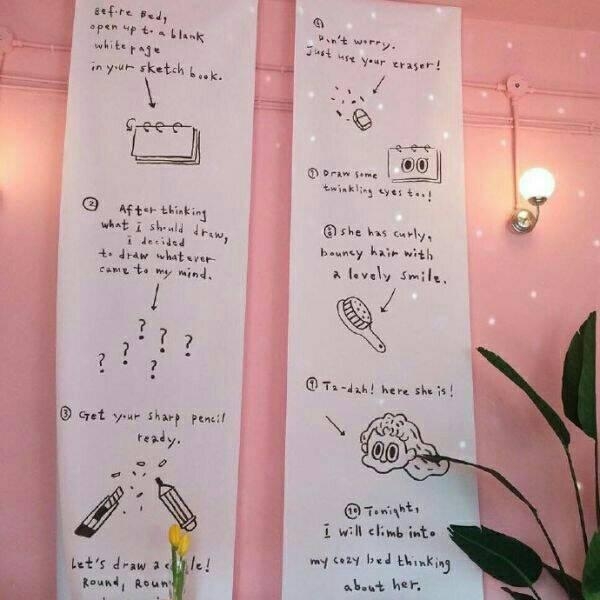 Before Bed,
open up to a blank
white page
in your sketch book.
② After thinking
what I should draw,
I decided
to draw whatever
came to my mind.
? ? ? ? ? ?
③ Get your sharp pencil
ready.
Let's draw a
Round,
⑥
Don't worry.
Just use your eraser!
⑦ Draw some
twinkling eyes too!
⑧ She has curly,
bouncy hair with
a lovely smile.
⑨ Ta-dah! here she is!
⑩ Tonight,
I will climb into
my cozy bed thinking
about her.